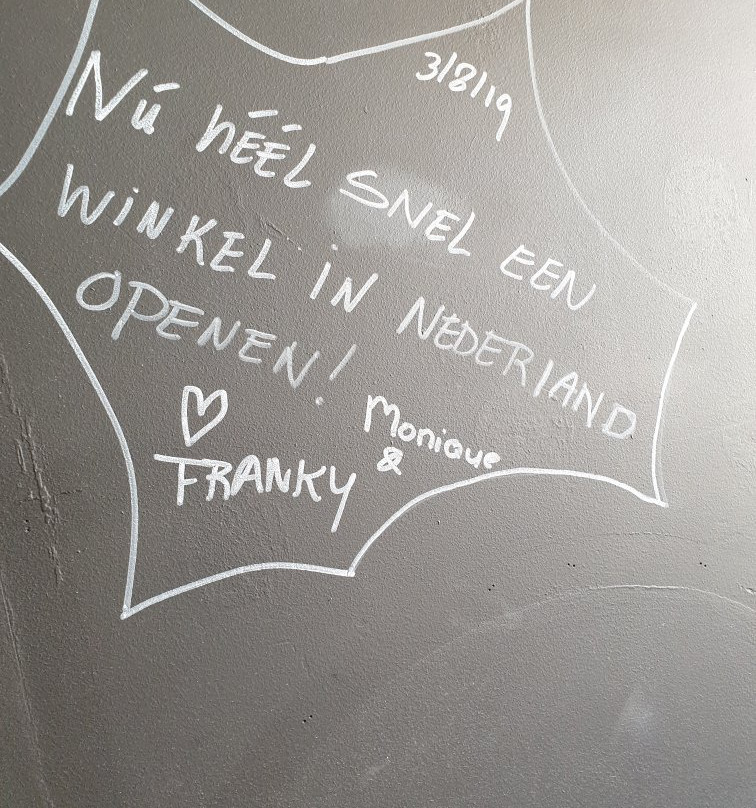 3/8/19
Nú HÉÉL SNEL EEN
WiNKEL iN NEDERlAND
OPENEN!
♡ Monique
&
FRANKY